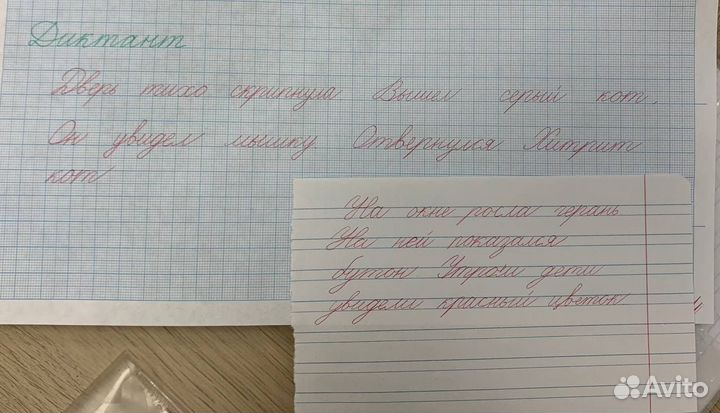 Диктант
Дверь тихо скрипнула Вышел серый кот.
Он увидел мышку. Отвернулся Хитрит
кот
На окне росла герань
На ней показался
бутон Утром дети
увидели красный цветок
Avito